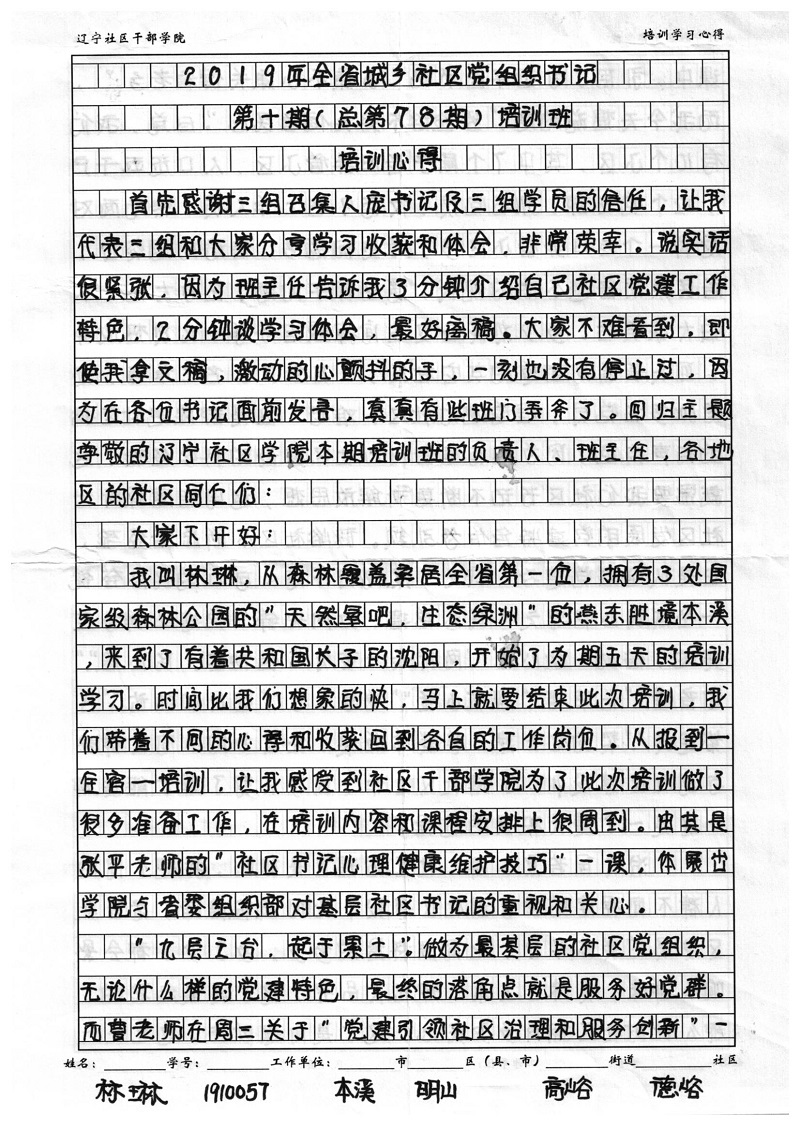 辽宁社区干部学院 培训学习心得
2019年全省城乡社区党组织书记
第十期(总第78期)培训班
培训心得
首先感谢三组召集人庞书记及三组学员的信任,让我
代表三组和大家分享学习收获和体会,非常荣幸。说实话
很紧张,因为班主任告诉我3分钟介绍自己社区党建工作
特色,2分钟谈学习体会,最好离稿。大家不难看到,即
使我拿文稿,激动的心颤抖的手,一刻也没有停止过,因
为在各位书记面前发言,真真有些班门弄斧了。回归主题
尊敬的辽宁社区学院本期培训班的负责人,班主任,各地
区的社区同仁们:
大家下午好:
我叫林琳,从森林覆盖率居全省第一位,拥有3处国
家级森林公园的“天然氧吧,生态绿洲”的燕东胜境本溪
,来到了有着共和国长子的沈阳,开始了为期五天的培训
学习。时间比我们想象的快,马上就要结束此次培训,我
们带着不同的心得和收获回到各自的工作岗位。从报到一
住宿一培训,让我感受到社区干部学院为了此次培训做了
很多准备工作,在培训内容和课程安排上很周到。由其是
张平老师的“社区书记心理健康维护技巧”一课,体展出
学院与省委组织部对基层社区书记的重视和关心。
“九层之台,起于累土”。做为最基层的社区党组织,
无论什么样的党建特色,最终的落角点就是服务好党群。
而曹老师在周三关于“党建引领社区治理和服务创新”一
姓名: 学号: 工作单位: 市 区(县、市) 街道 社区
林琳 1910057 本溪 明山 高峪 德峪